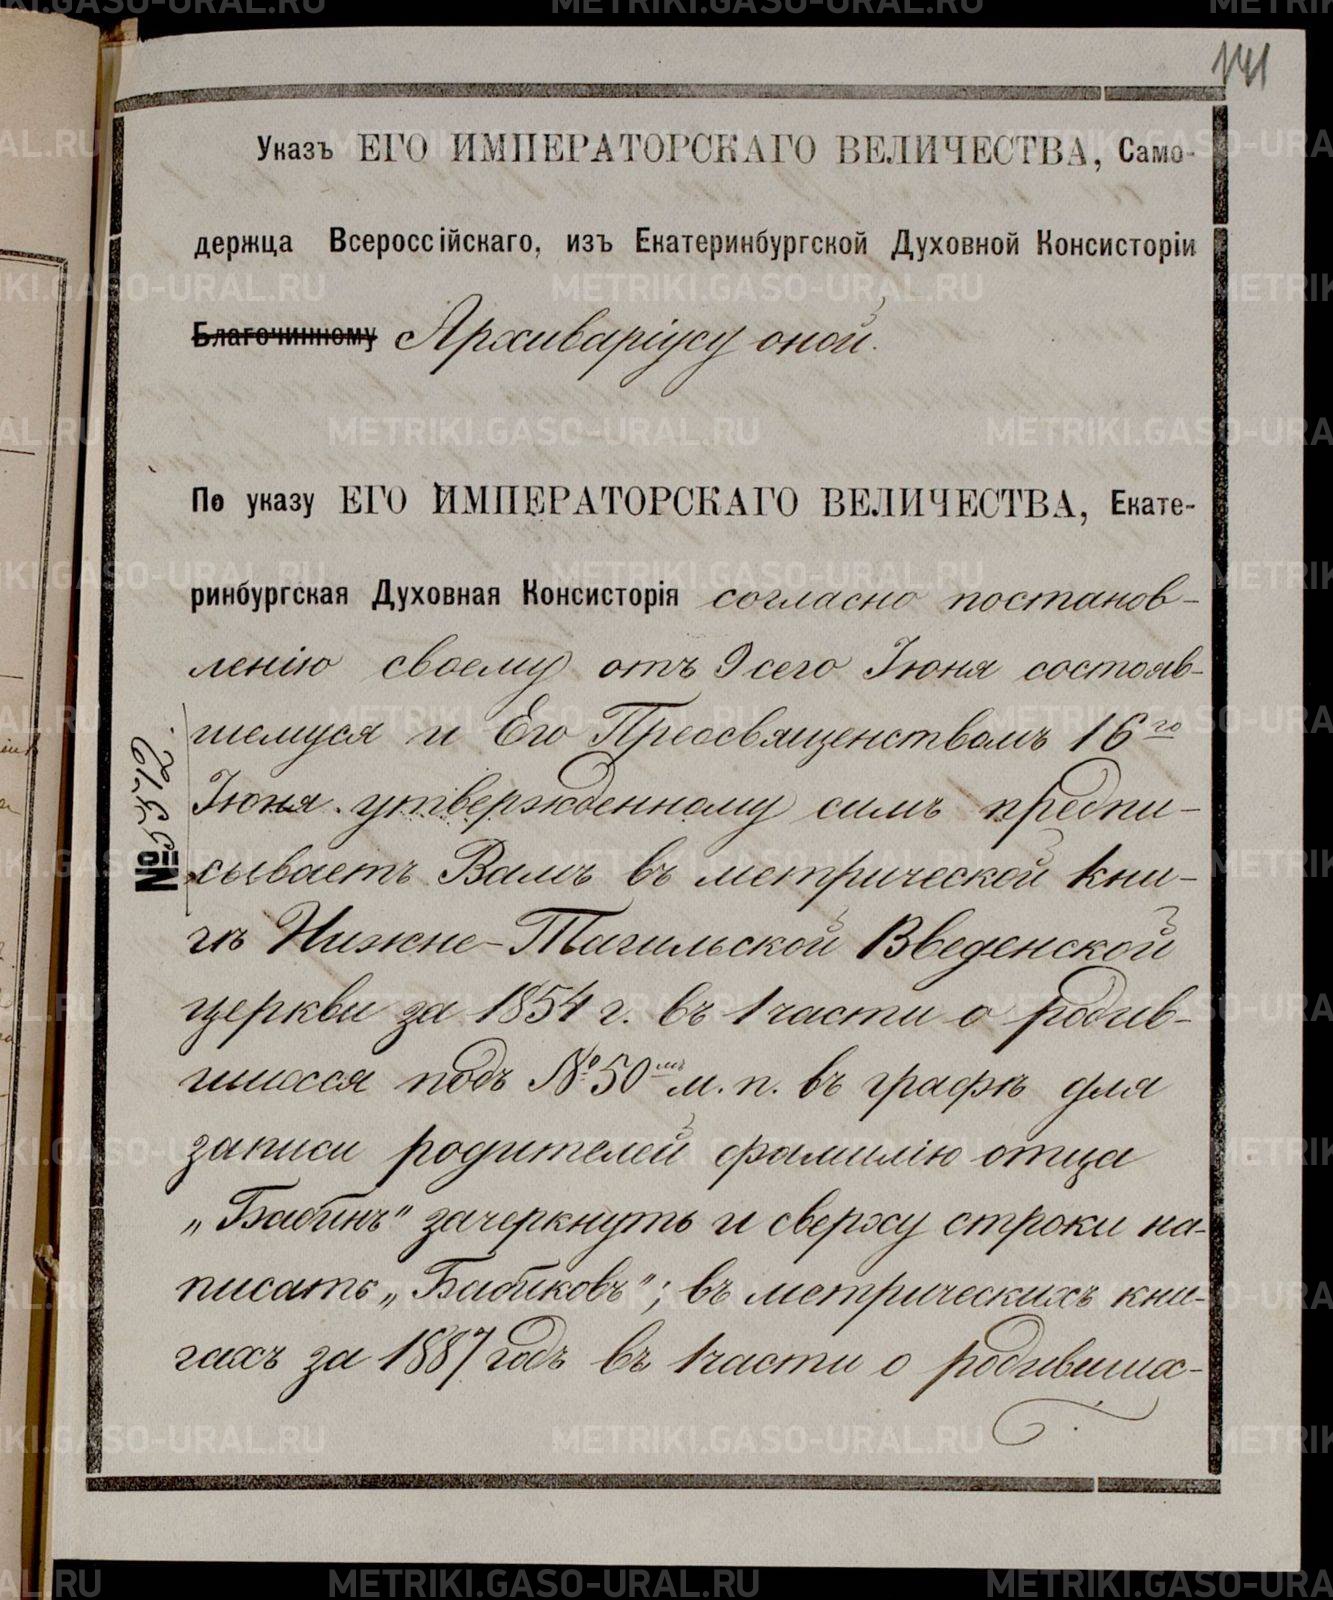 141
Указъ ЕГО ИМПЕРАТОРСКАГО ВЕЛИЧЕСТВА, Само-
держца Всероссійскаго, изъ Екатеринбургской Духовной Консисторіи
Благочинному Архиваріусу оной.
По указу ЕГО ИМПЕРАТОРСКАГО ВЕЛИЧЕСТВА, Екате-
ринбургская Духовная Консисторія согласно постанов-
ленію своему отъ 9 сего Іюня состояв-
шемуся и Его Преосвященствомъ 16го
Іюня утвержденному симъ предпи-
сываетъ Вамъ въ метрической кни-
гѣ Нижне-Тагильской Введенской
церкви за 1854 г. въ 1 части о родив-
шихся подъ №50 м. п. въ графѣ для
записи родителей фамилію отца
„Бабинъ" зачеркнуть и сверху строки на-
писать „Бабиковъ"; въ метрическихъ кни-
гахъ за 1887 годъ въ 1 части о родивших-
№
METRIKI.GASO-URAL.RU